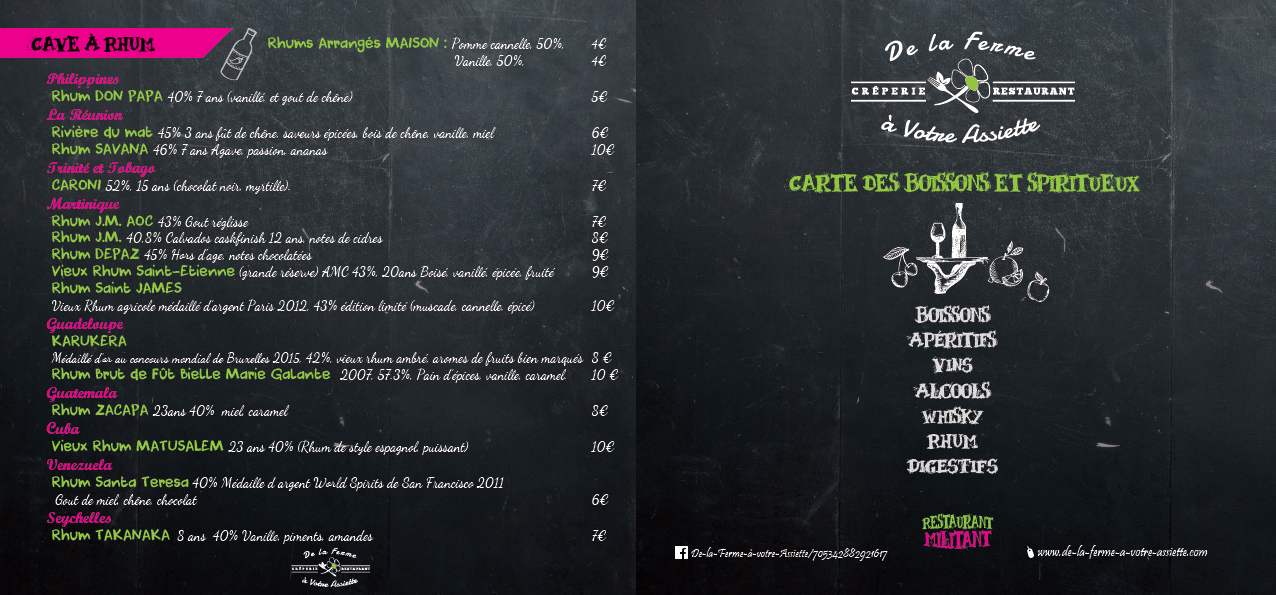 CAVE À RHUM
Rhums Arrangés MAISON : Pomme cannelle, 50%, 4€
Vanille, 50%, 4€
Philippines
Rhum DON PAPA 40% 7 ans (vanillé, et gout de chêne) 5€
La Réunion
Rivière du mat 45% 3 ans fût de chêne, saveurs épicées, bois de chêne, vanille, miel 6€
Rhum SAVANA 46% 7 ans Agave, passion, ananas 10€
Trinité et Tobago
CARONI 52%, 15 ans (chocolat noir, myrtille), 7€
Martinique
Rhum J.M. AOC 43% Gout réglisse 7€
Rhum J.M. 40,8% Calvados caskfinish 12 ans, notes de cidres 8€
Rhum DEPAZ 45% Hors d'age, notes chocolatées 9€
Vieux Rhum Saint-Etienne (grande réserve) AMC 43%, 20ans Boisé, vanillé, épicée, fruité 9€
Rhum Saint JAMES
Vieux Rhum agricole médaillé d'argent Paris 2012, 43% édition limité (muscade, cannelle, épicé) 10€
Guadeloupe
KARUKERA
Médaillé d'or au concours mondial de Bruxelles 2015, 42%, vieux rhum ambré, aromes de fruits bien marqués 8 €
Rhum Brut de Fût Bielle Marie Galante 2007, 57,3%, Pain d'épices, vanille, caramel, 10 €
Guatemala
Rhum ZACAPA 23ans 40% miel, caramel 8€
Cuba
Vieux Rhum MATUSALEM 23 ans 40% (Rhum de style espagnol, puissant) 10€
Venezuela
Rhum Santa Teresa 40% Médaille d'argent World Spirits de San Francisco 2011
Gout de miel, chêne, chocolat 6€
Seychelles
Rhum TAKANAKA 8 ans 40% Vanille, piments, amandes 7€
De la Ferme
CRÊPERIE RESTAURANT
à Votre Assiette
De la Ferme
CRÊPERIE RESTAURANT
à Votre Assiette
CARTE DES BOISSONS ET SPIRITUEUX
BOISSONS
APÉRITIFS
VINS
ALCOOLS
WHISKY
RHUM
DIGESTIFS
RESTAURANT
MILITANT
De-la-Ferme-à-votre-Assiette/705342882921617
www.de-la-ferme-a-votre-assiette.com